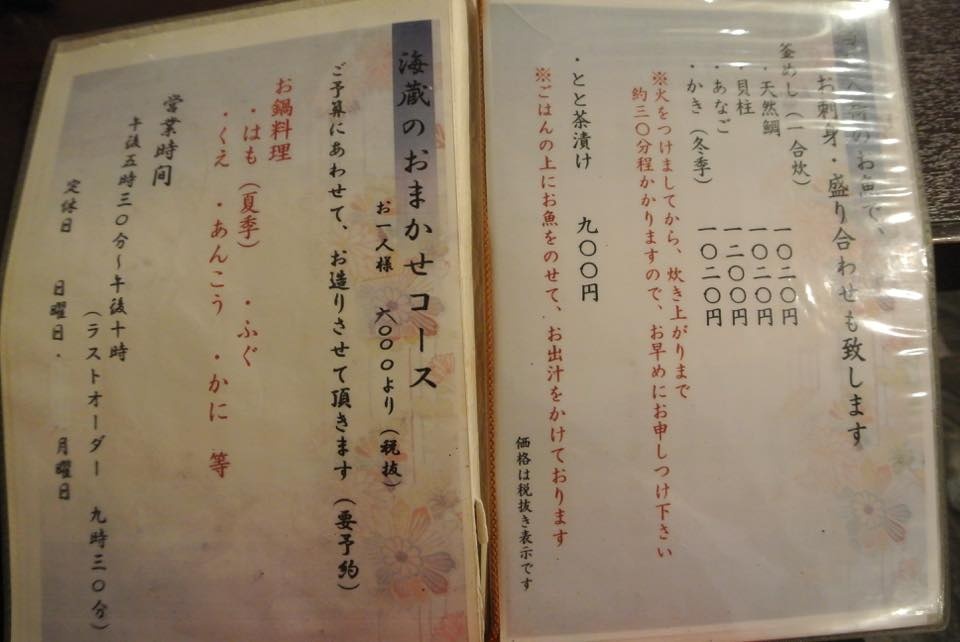 のお魚で、
お刺身・盛り合わせも致します
釜めし（一合炊）
・天然鯛　一〇二〇円
貝柱　一〇二〇円
・あなご　一二〇〇円
・かき（冬季）　一〇二〇円
※火をつけましてから、炊き上がりまで
約三〇分程かかりますので、お早めにお申しつけ下さい
・とと茶漬け　九〇〇円
※ごはんの上にお魚をのせて、お出汁をかけております
価格は税抜き表示です
海蔵のおまかせコース
お一人様　六〇〇〇より（税抜）
ご予算にあわせて、お造りさせて頂きます（要予約）
お鍋料理
・はも（夏季）　・ふぐ
・くえ　・あんこう　・かに　等
営業時間
午後五時三〇分～午後十時
（ラストオーダー　九時三〇分）
定休日　日曜日・　月曜日